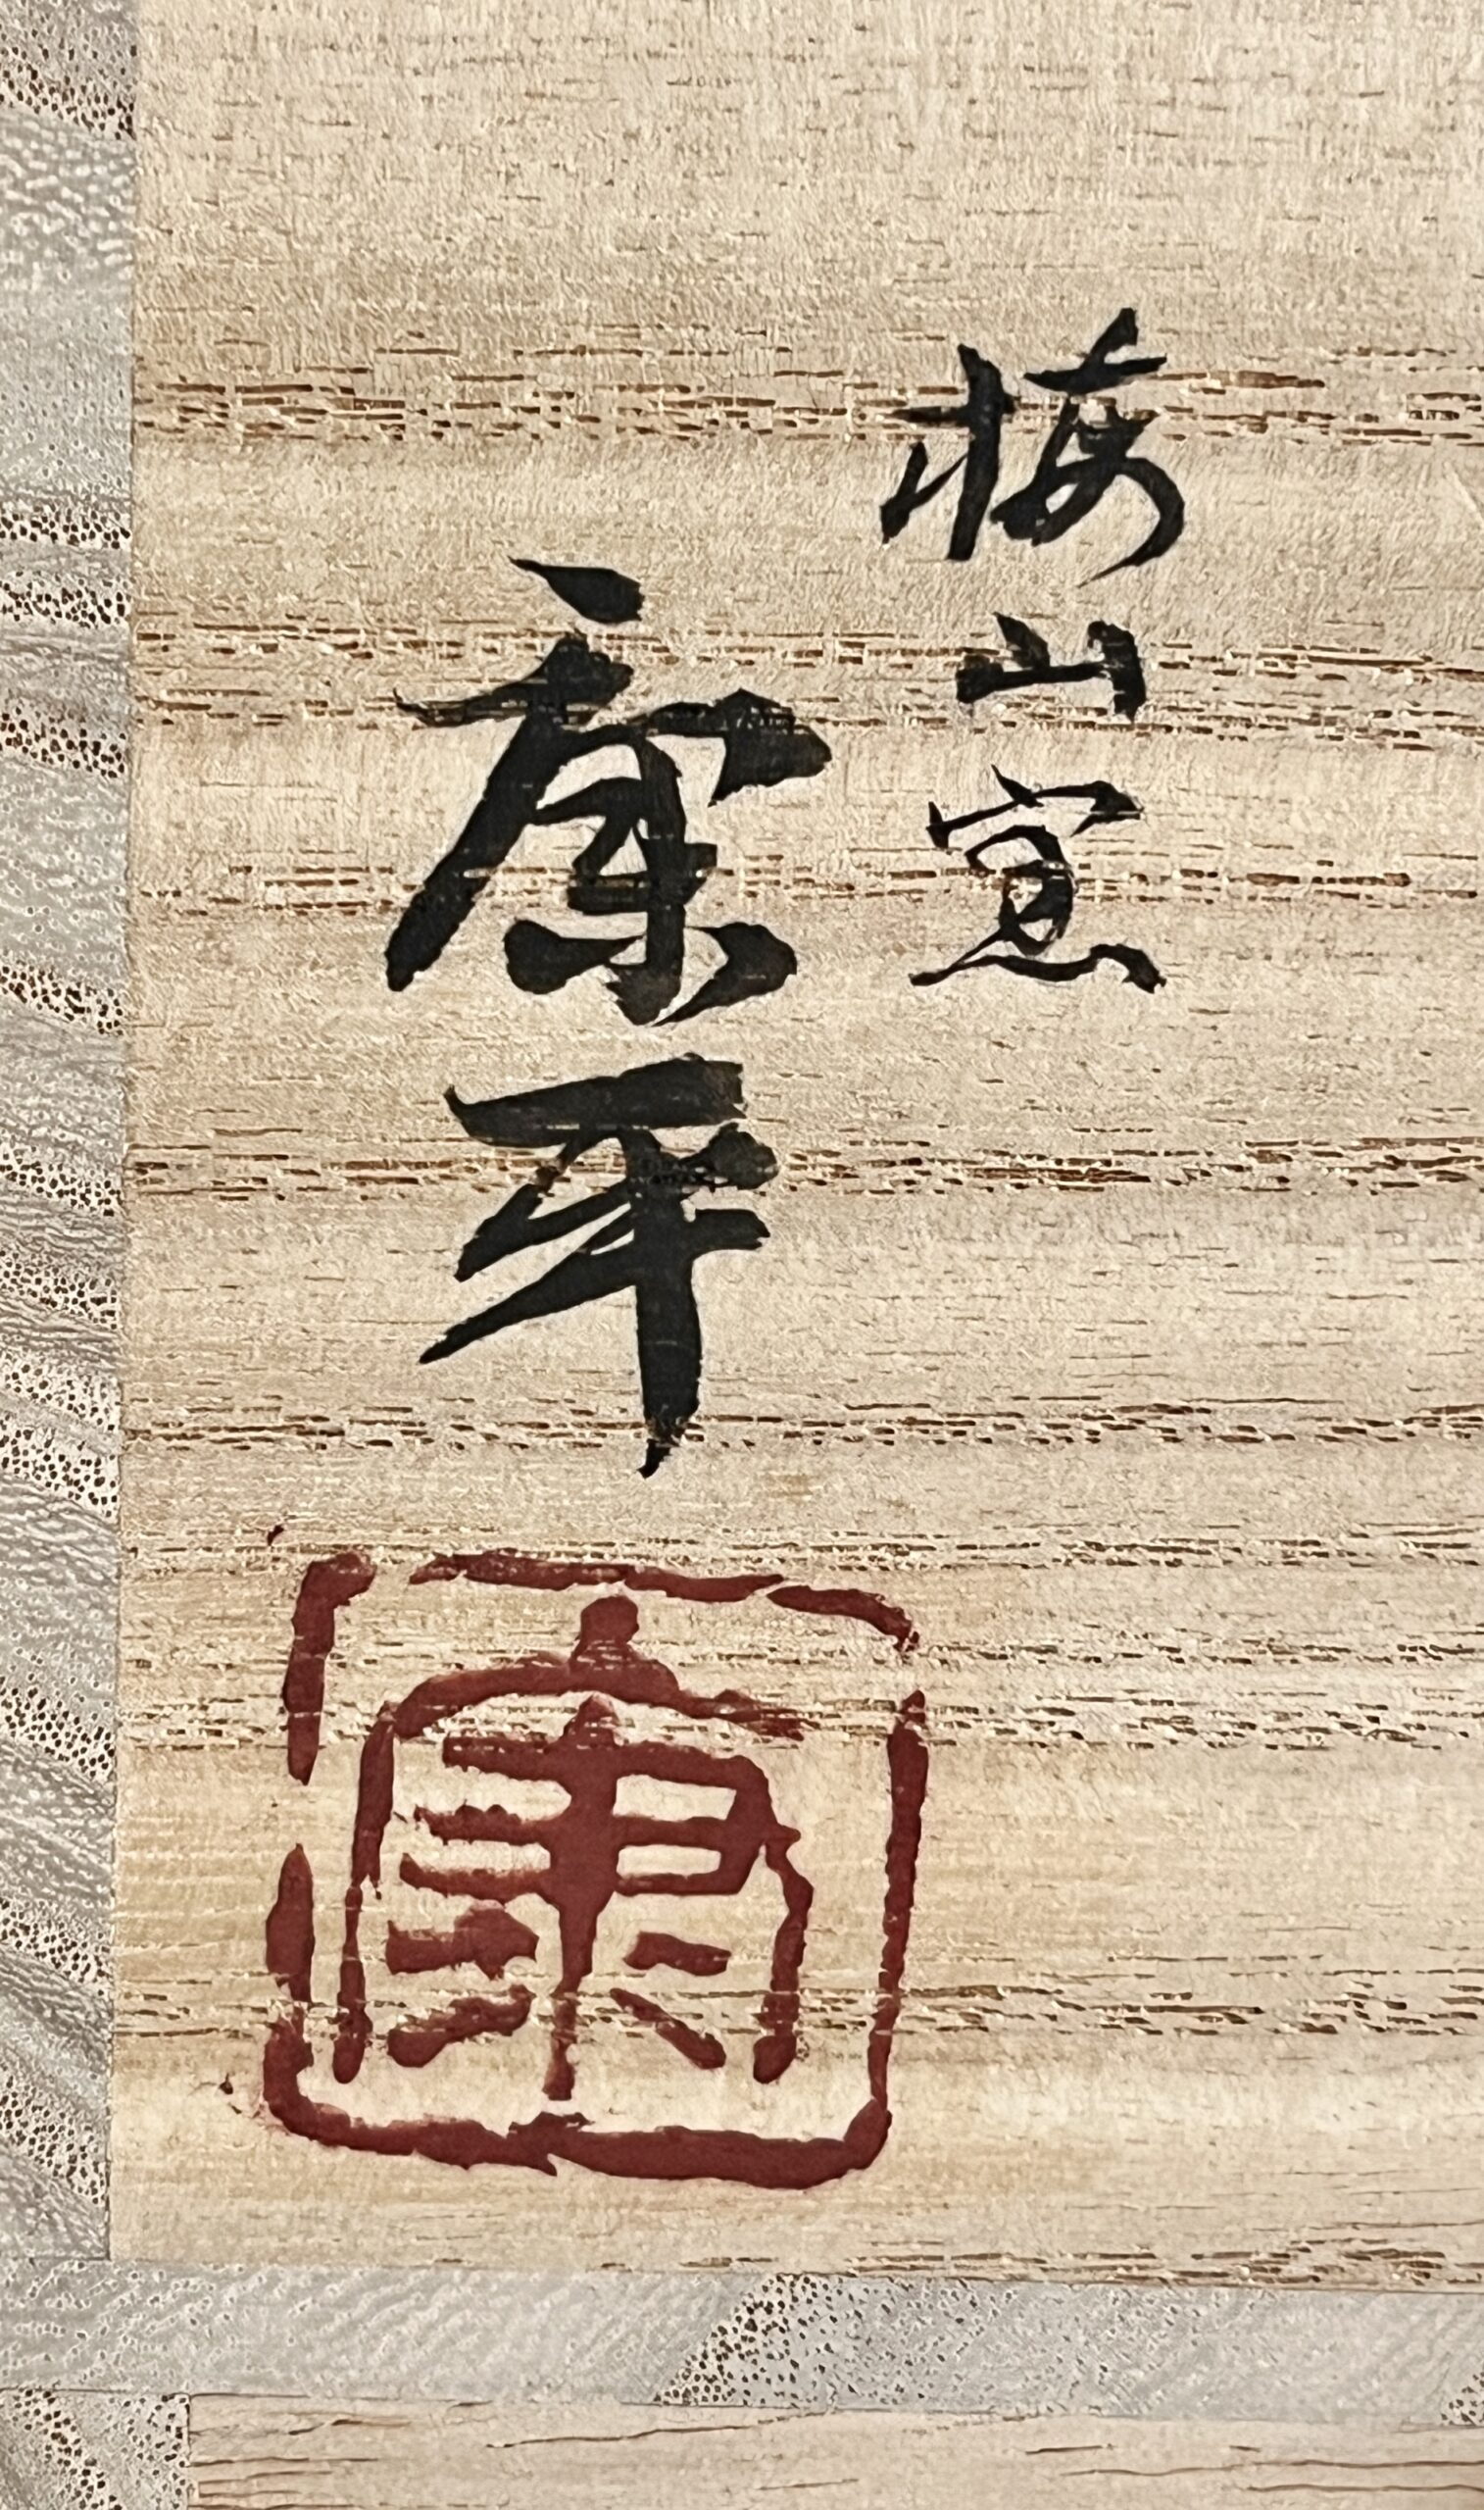 梅山窯
康平
康